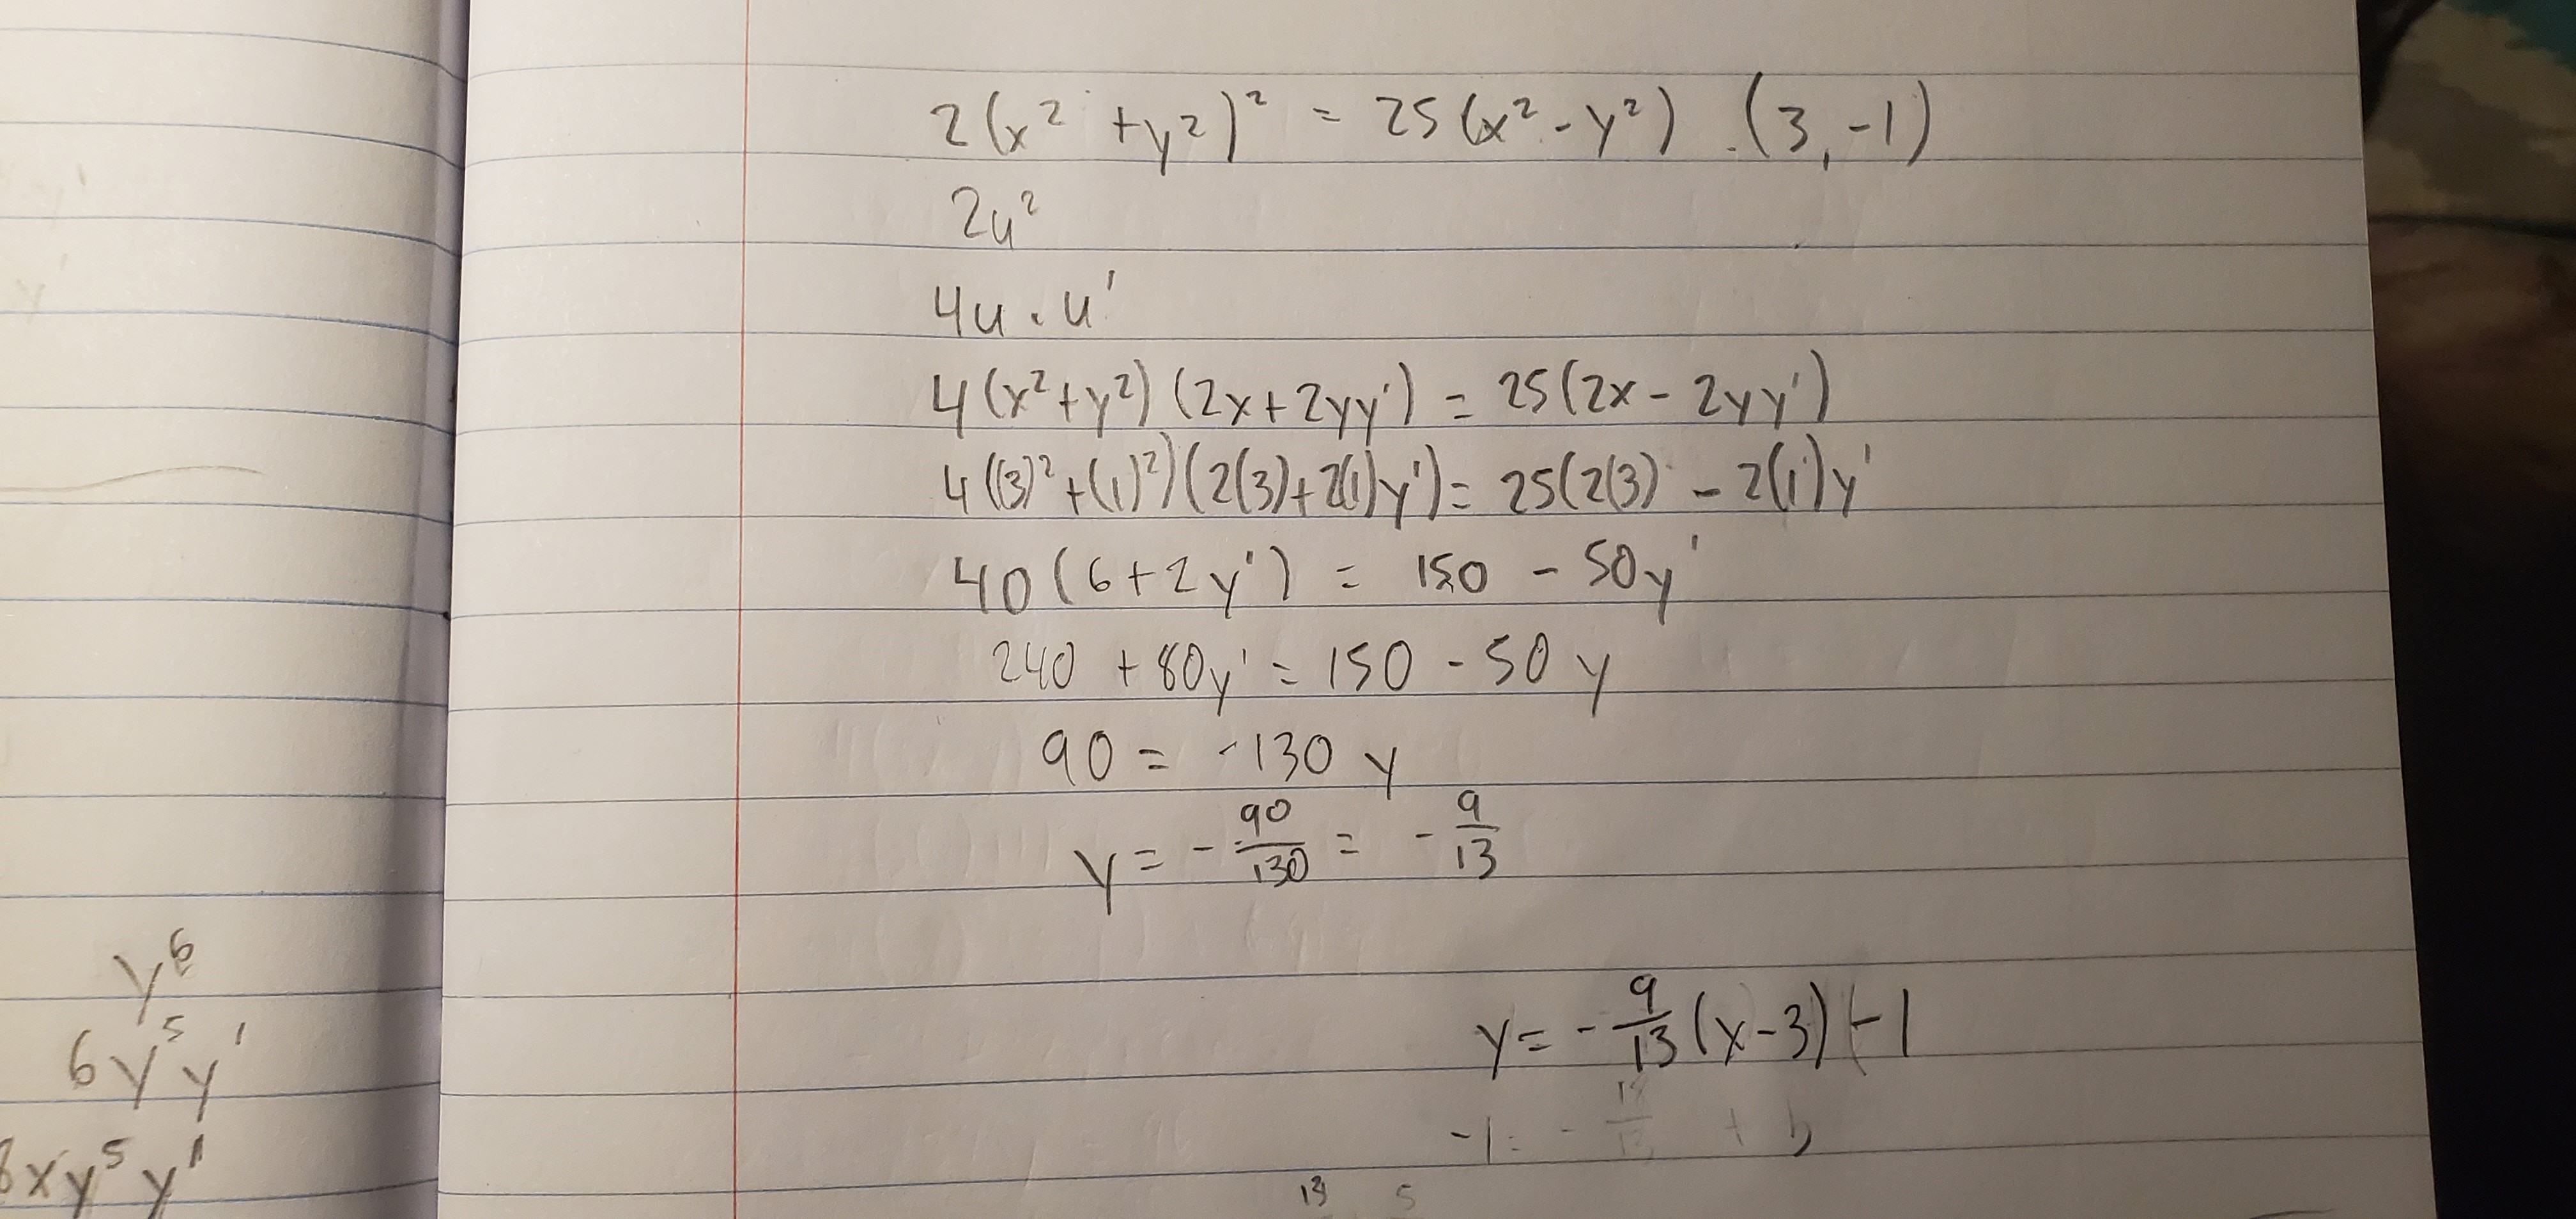 2(x² + y²)² = 25(x² - y²) . (3, -1)
2u²
4u · u'
4(x² + y²)(2x + 2yy') = 25(2x - 2yy')
4((3)² + (1)²)(2(3) + 2(1)y') = 25(2(3) - 2(1)y'
40(6 + 2y') = 150 - 50y'
240 + 80y' = 150 - 50y
90 = -130y
y = -90/130 = -9/13
y = -9/13(x-3) - 1
-1 = - + b
13 5
y⁶
6y⁵y'
xy⁵y'